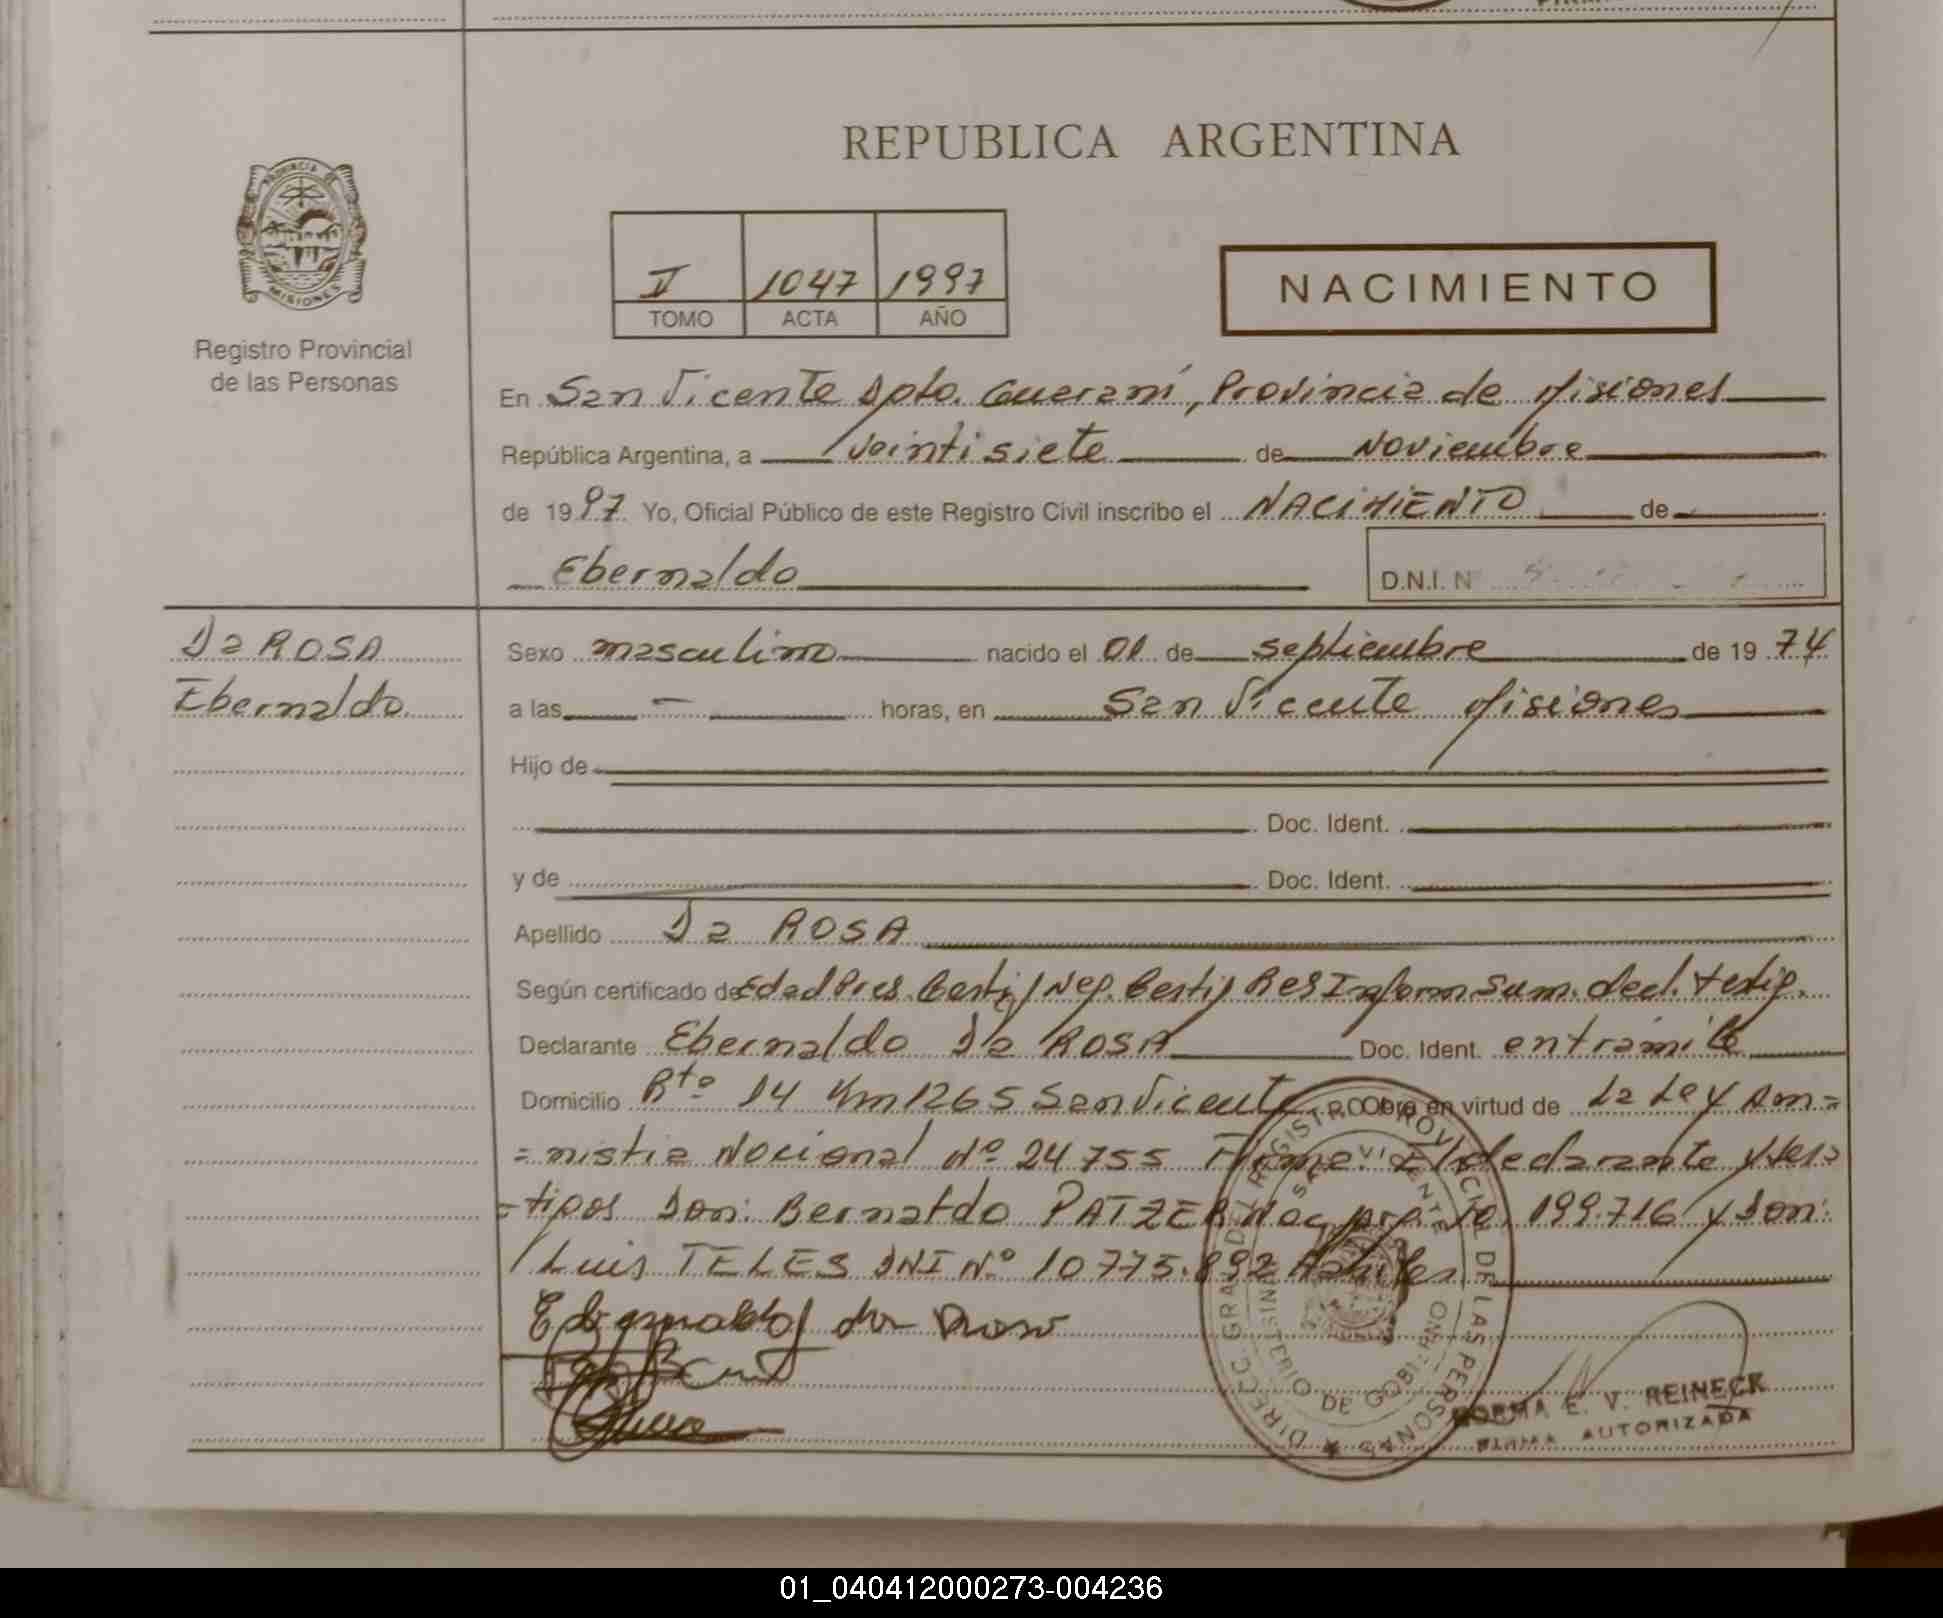 REPUBLICA ARGENTINA
PROVINCIA DE
MISIONES
Registro Provincial
de las Personas
1047 1997
TOMO ACTA AÑO
NACIMIENTO
En San Vicente Dpto. Guaraní, Provincia de Misiones
República Argentina, a veintisiete de Noviembre
de 1997 Yo, Oficial Público de este Registro Civil inscribo el NACIMIENTO de
Ebernaldo
D.N.I. N°
Da ROSA
Ebernaldo
Sexo masculino nacido el 01 de septiembre de 1974
a las — horas, en San Vicente Misiones
Hijo de
Doc. Ident.
y de Doc. Ident.
Apellido Da ROSA
Según certificado de Edad Pres. Certif Neg. Certif Res Inform Sum. decl. testig.
Declarante Ebernaldo Da ROSA Doc. Ident. entrámite
Domicilio Rta 14 Km 1265 San Vicente Obra en virtud de La Ley Am=
=nistia Nacional Nº 24755 Firma: El declarante y tes=
=tigos Don: Bernardo PATZER Nac 199.716 y Don:
Luis TELES DNI Nº 10775.892
DIRECC. GRAL. DEL REGISTRO PROVINCIAL DE LAS PERSONAS
MINISTERIO DE GOBIERNO
SAN VICENTE
NORMA E. V. REINECK
FIRMA AUTORIZADA
01_040412000273-004236